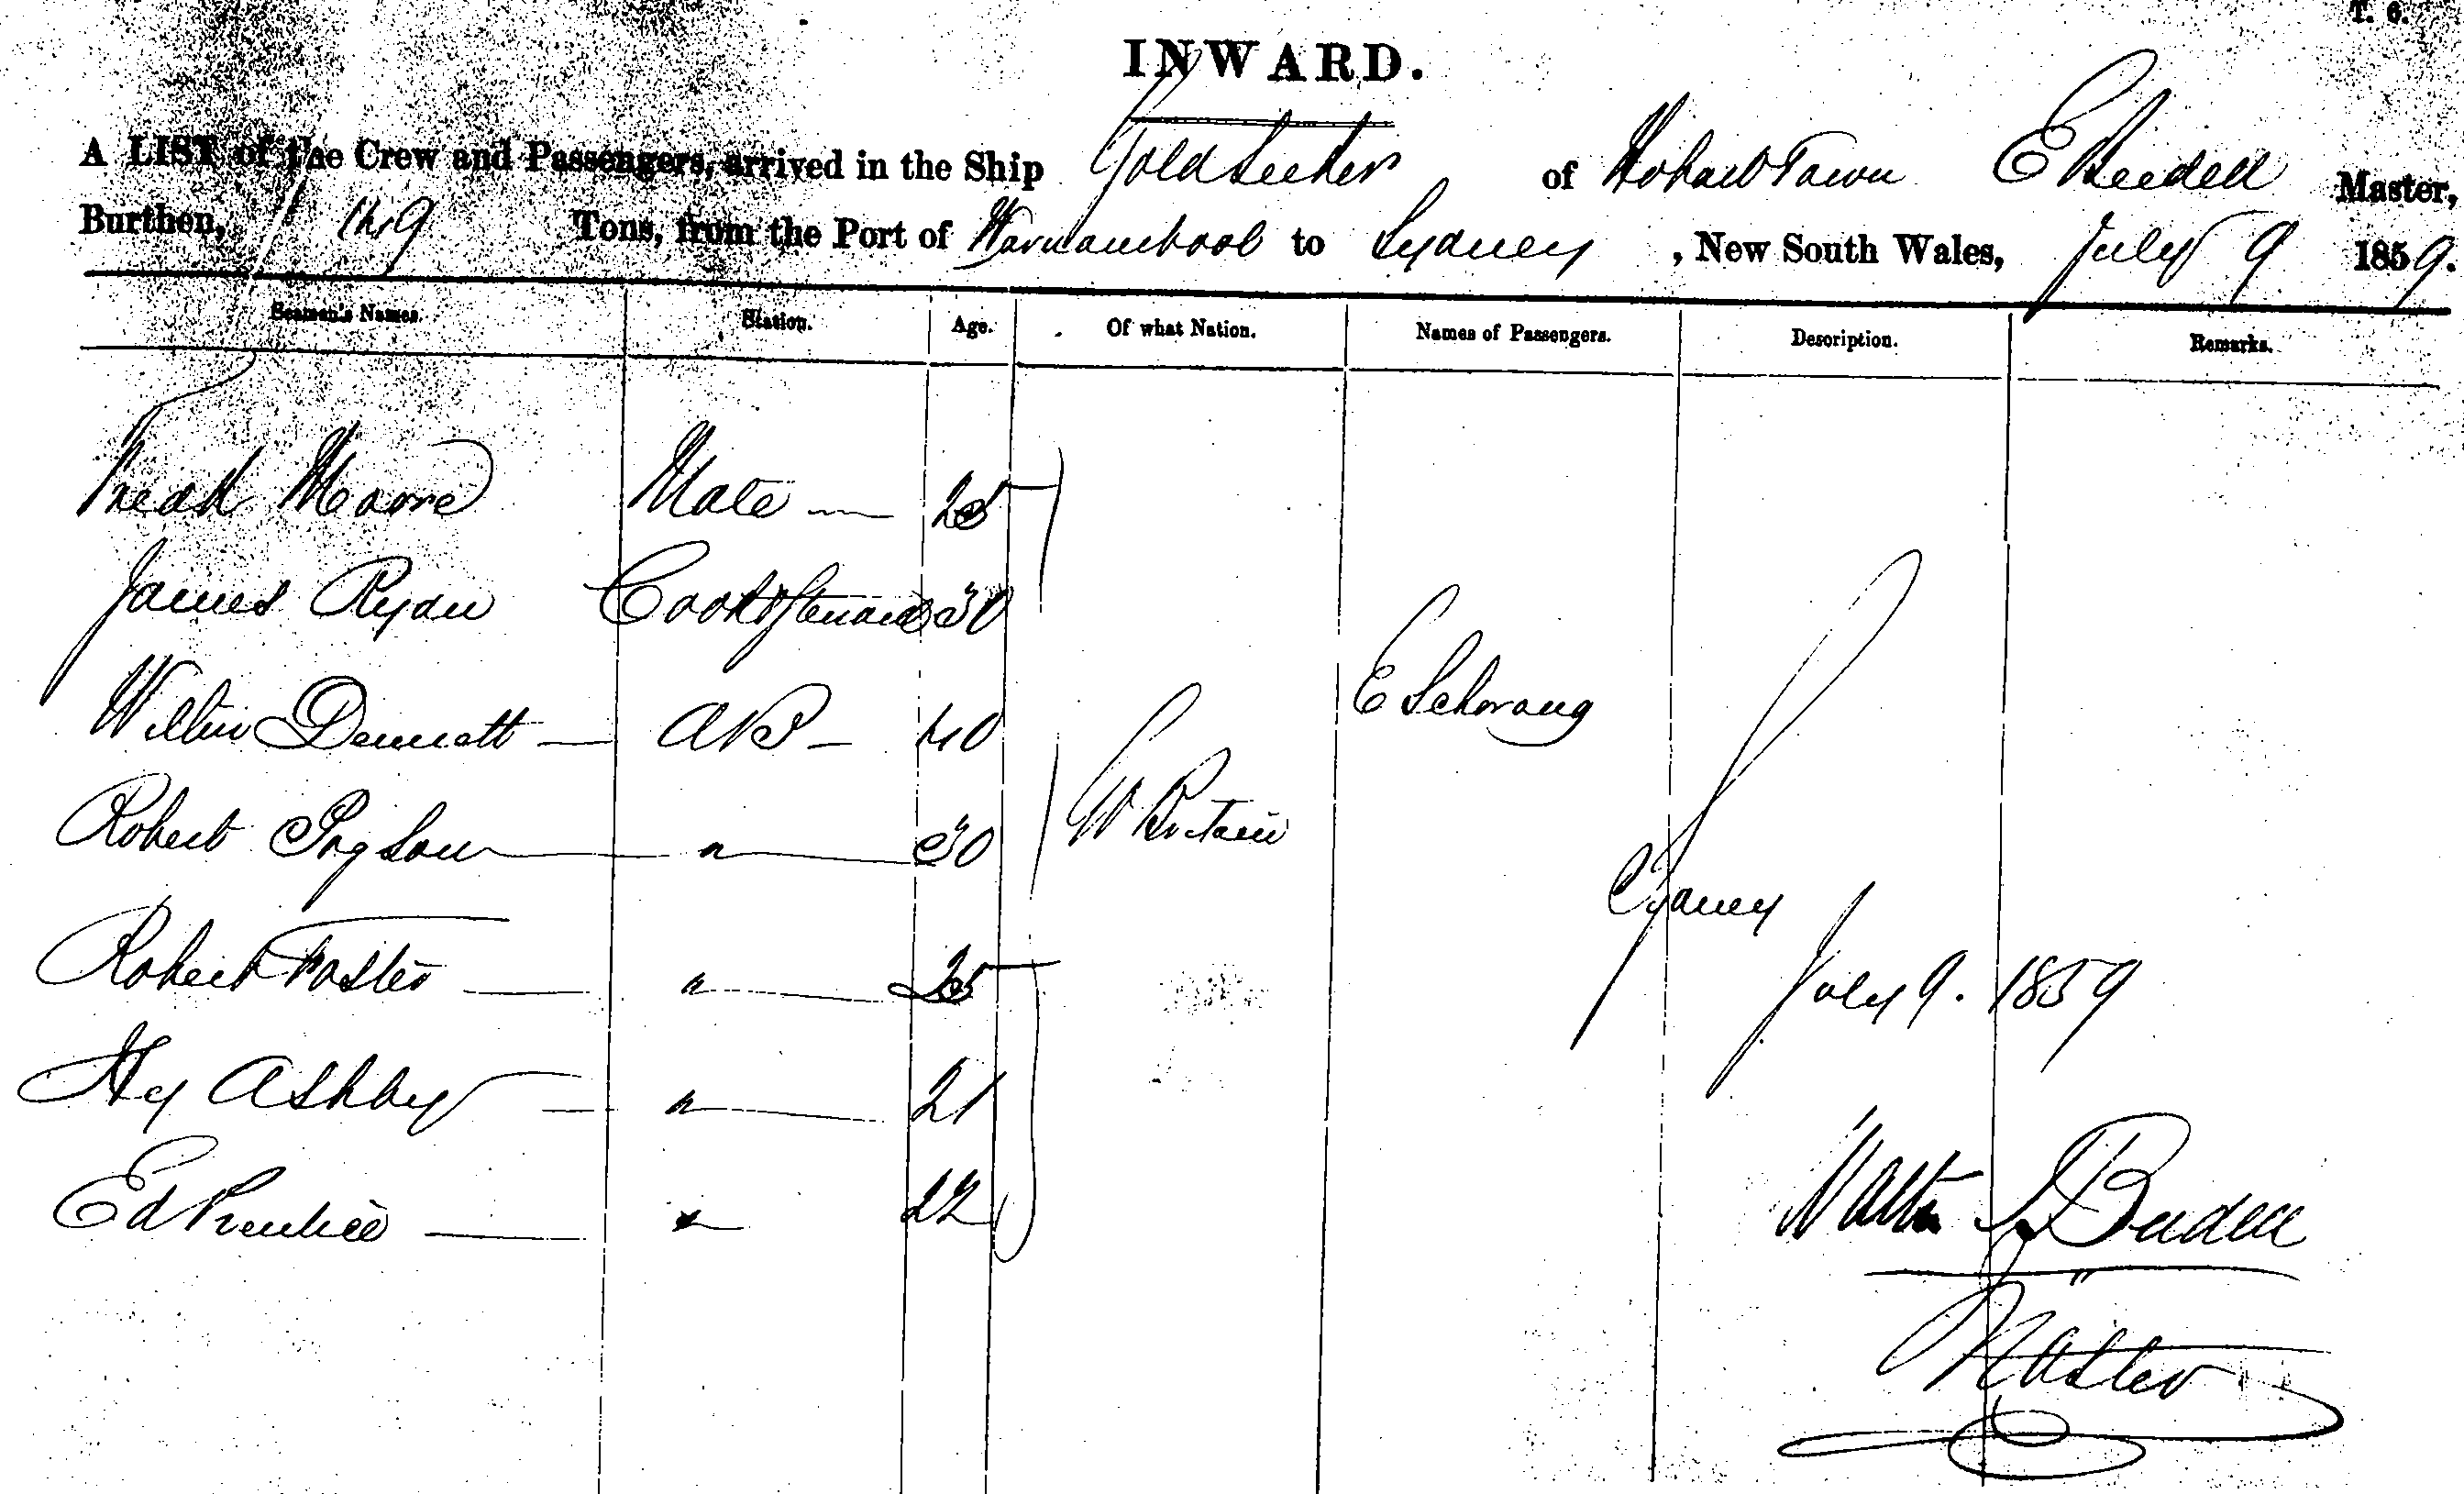 T. 6.
INWARD.
A LIST of the Crew and Passengers, arrived in the Ship Gold Seeker of Hobart Town E Bendell Master,
Burthen, 149 Tons, from the Port of Warnambool to Sydney, New South Wales, July 9 1859.
Seamen's Names. Station. Age. Of what Nation. Names of Passengers. Description. Remarks.
Moore Mate 25
James Ryan Cook & Steward 30
E Schrang
Dennett AB 40
Robert Pogson " 30 Gt Britain
Sydney
Robert Foster " 25
July 9. 1859
Hy Ashby " 21
Ed Prentice " 22
Master